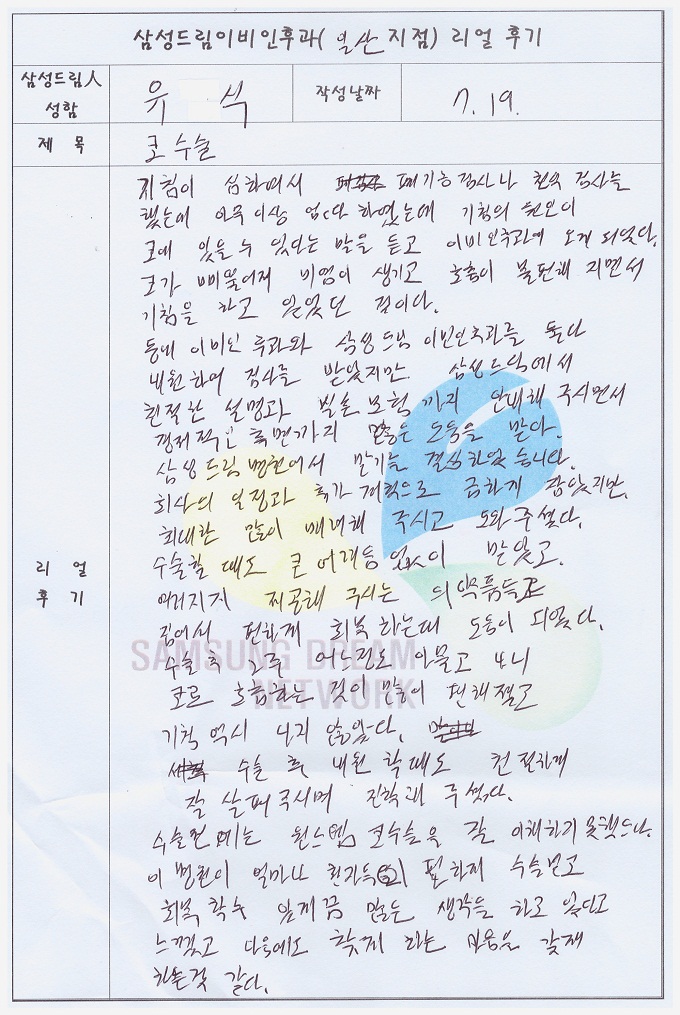 삼성드림이비인후과( 일산 지점) 리얼 후기
삼성드림人
성함
유 식
작성날짜
7. 19.
제 목
코 수술
기침이 심하여서 폐기능검사나 천식 검사를
했는데 아무 이상 없다 하였는데 기침의 원인이
코에 있을 수 있다는 말을 듣고 이비인후과에 오게 되었다.
코가 삐뚤어져 비염이 생기고 호흡이 불편해 지면서
기침을 하고 있었던 것이다.
동네 이비인후과와 삼성드림 이비인후과를 둘다
내원하여 검사를 받았지만 삼성드림에서
친절한 설명과 보험 까지 안내해 주시면서
경제적인 측면까지 많은 도움을 받다.
삼성드림병원에서 받기를 결심하였습니다.
회사의 일정과 휴가 계획으로 급하게 잡았지만,
최대한 많이 배려해 주시고 도와주셨다.
수술할 때도 큰 어려움 없이 받았고,
여러가지 제공해 주시는 의약품들로
집에서 편하게 회복하는데 도움이 되었다.
수술 후 2주 어느정도 아물고 나니
코로 호흡하는 것이 많이 편해졌고
기침 역시 나지 않았다.
수술 후 내원 할때도 친절하게
잘 살펴주시며 진학해 주셨다.
수술전에는 원스텝 코수술을 잘 이해하기 못했으나.
이 병원이 얼마나 환자들이 편하게 수술받고
회복 할수 있게끔 많은 생각을 하고 있다고
느꼈고 다음에도 찾게 되는 마음을 갖게
하는것 같다.
리 얼
후 기
SAMSUNG DREAM
NETWORK